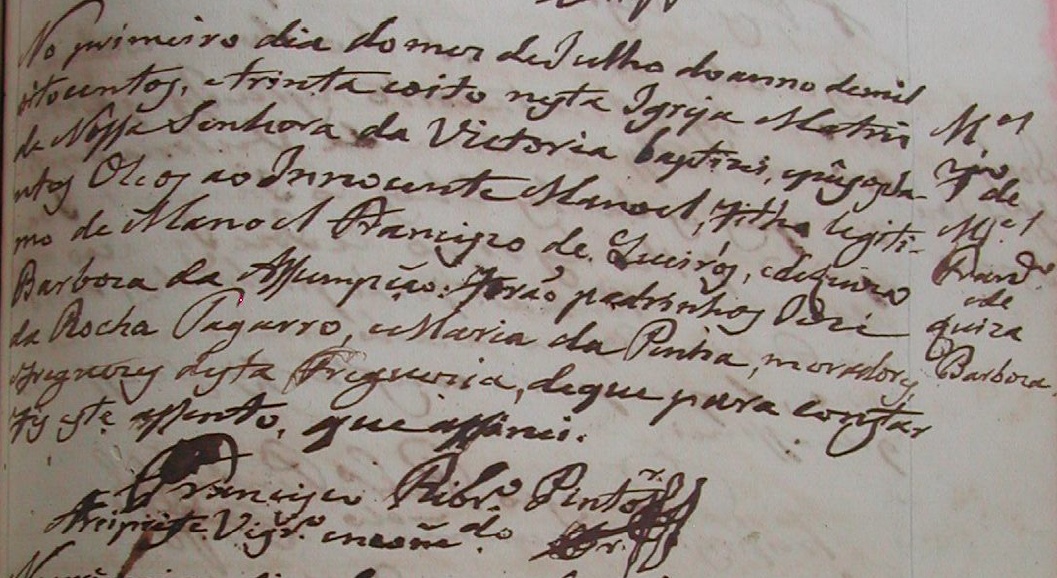 No primeiro dia do mez de Julho do anno de mil
oitocentos, e trinta e oito nesta Igreja Matriz
de Nossa Senhora da Victoria baptizei, e pûs os Sa-
ntos Oleos ao Innocente Manoel, filho legiti-
mo de Manoel Francisco de Queirós, e de
Barboza da Assumpção: forão padrinhos José
da Rocha Pagarro, e Maria da Penha, moradores,
e freguezes desta Freguezia, de que para constar
fiz este assento, que assinei.
Francisco Ribr.º Pinto
Vigr.º encom.do
M.el
fº de
M.el
Fran.co
e de
quiza
Barboza